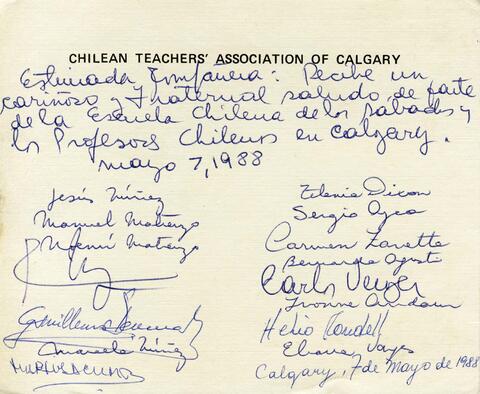 CHILEAN TEACHERS' ASSOCIATION OF CALGARY
Estimada Compañera: Recibe un
cariñoso y fraternal saludo de parte
de la Escuela Chilena de los sábados y
los Profesores Chilenos en Calgary.
mayo 7, 1988
Jesús Núñez
Manuel
Noemí
Guillermo
Marcela Núñez
Dixon
Sergio
Carmen Zanetta
Bernarda
Carlos
Ivonne
Helio
Calgary, 7 de Mayo de 1988